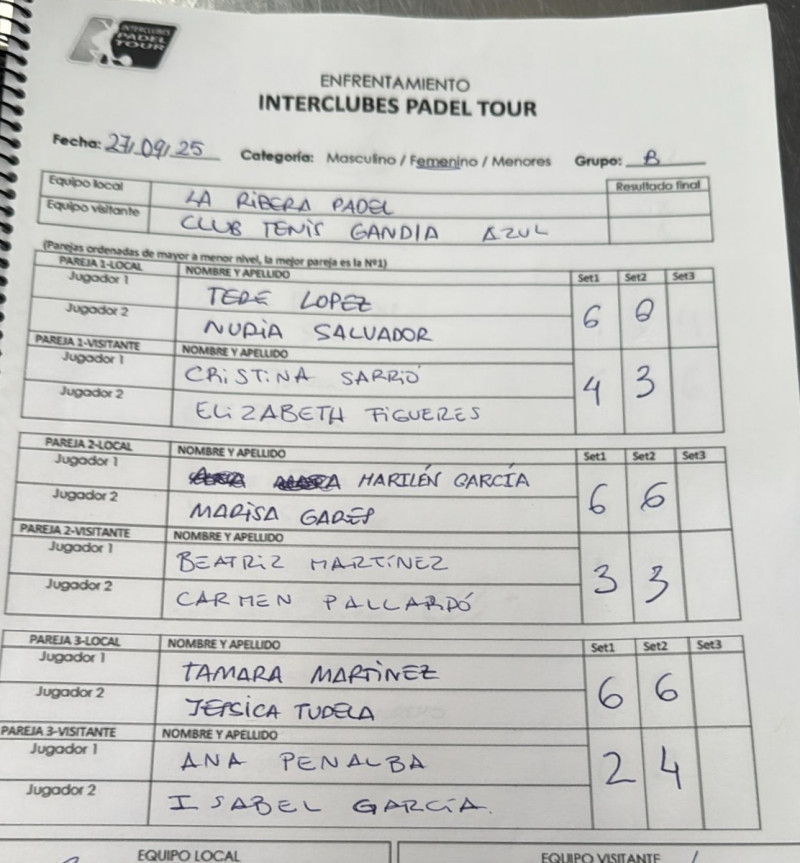 INTERCLUBES
PADEL
TOUR
ENFRENTAMIENTO
INTERCLUBES PADEL TOUR
Fecha: 27/09/25 Categoría: Masculino / Femenino / Menores Grupo: B
Equipo local LA RIBERA PADEL Resultado final
Equipo visitante CLUB TENIS GANDIA AZUL
(Parejas ordenadas de mayor a menor nivel, la mejor pareja es la Nº1)
PAREJA 1-LOCAL NOMBRE Y APELLIDO Set1 Set2 Set3
Jugador 1 TERE LOPEZ
Jugador 2 NURIA SALVADOR
6 6
PAREJA 1-VISITANTE NOMBRE Y APELLIDO
Jugador 1 CRISTINA SARRIÓ
Jugador 2 ELIZABETH FIGUERES
4 3
PAREJA 2-LOCAL NOMBRE Y APELLIDO Set1 Set2 Set3
Jugador 1 MARILÉN GARCÍA
Jugador 2 MARISA GARES
6 6
PAREJA 2-VISITANTE NOMBRE Y APELLIDO
Jugador 1 BEATRIZ MARTÍNEZ
Jugador 2 CARMEN PALLARDÓ
3 3
PAREJA 3-LOCAL NOMBRE Y APELLIDO Set1 Set2 Set3
Jugador 1 TAMARA MARTINEZ
Jugador 2 JESSICA TUDELA
6 6
PAREJA 3-VISITANTE NOMBRE Y APELLIDO
Jugador 1 ANA PENALBA
Jugador 2 ISABEL GARCÍA.
2 4
EQUIPO LOCAL EQUIPO VISITANTE